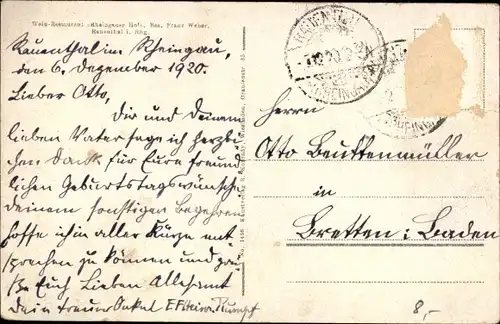 Wein-Restaurant „Rheingauer Hof", Bes. Franz Weber,
Rauenthal i. Rhg.
Rauenthal im Rheingau,
den 6. Dezember 1920.
Lieber Otto,
Dir und Deinem
lieben Vater sage ich herzli-
chen Dank für Eure freund-
lichen Geburtstagswünsche
deinem sonstigen Begehren
hoffe ich in aller Kürze ent-
sprechen zu können und grü-
ße Euch Lieben Allesamt
dein treuer Onkel
Rumpf
Herrn
Otto Beuttenmüller
in
Bretten i. Baden
8,-